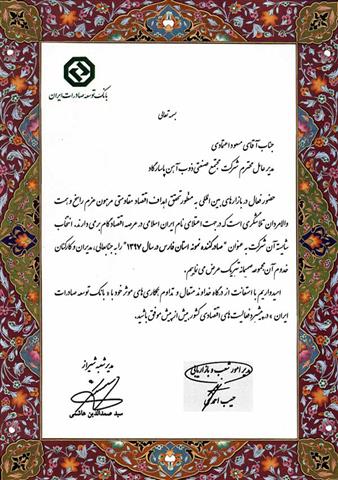 بانک توسعه صادرات ایران
بسمه تعالی
جناب آقای مسعود اعتمادی
مدیر عامل محترم شرکت مجتمع صنعتی ذوب آهن پاسارگاد
حضور فعال در بازارهای بین المللی به منظور تحقق اهداف اقتصاد مقاومتی مرهون عزم راسخ و همت
والامردان تلاشگری است که در جهت اعتلای نام ایران اسلامی در عرصه اقتصاد گام بر می دارند. انتخاب
شایسته آن شرکت به عنوان "صادرکننده نمونه استان فارس در سال ۱۳۹۷" را به جنابعالی، مدیران و کارکنان
خدوم آن مجموعه صمیمانه تبریک عرض می نماییم.
امیدواریم با استعانت از درگاه خداوند متعال و تداوم همکاری های موثر خود با «بانک توسعه صادرات
ایران» در پیشبرد فعالیت های اقتصادی کشور بیش از پیش موفق باشید.
مدیر امور شعب و بازاریابی
حبیب احمدی
مدیر شعبه شیراز
سید صمدالدین هاشمی